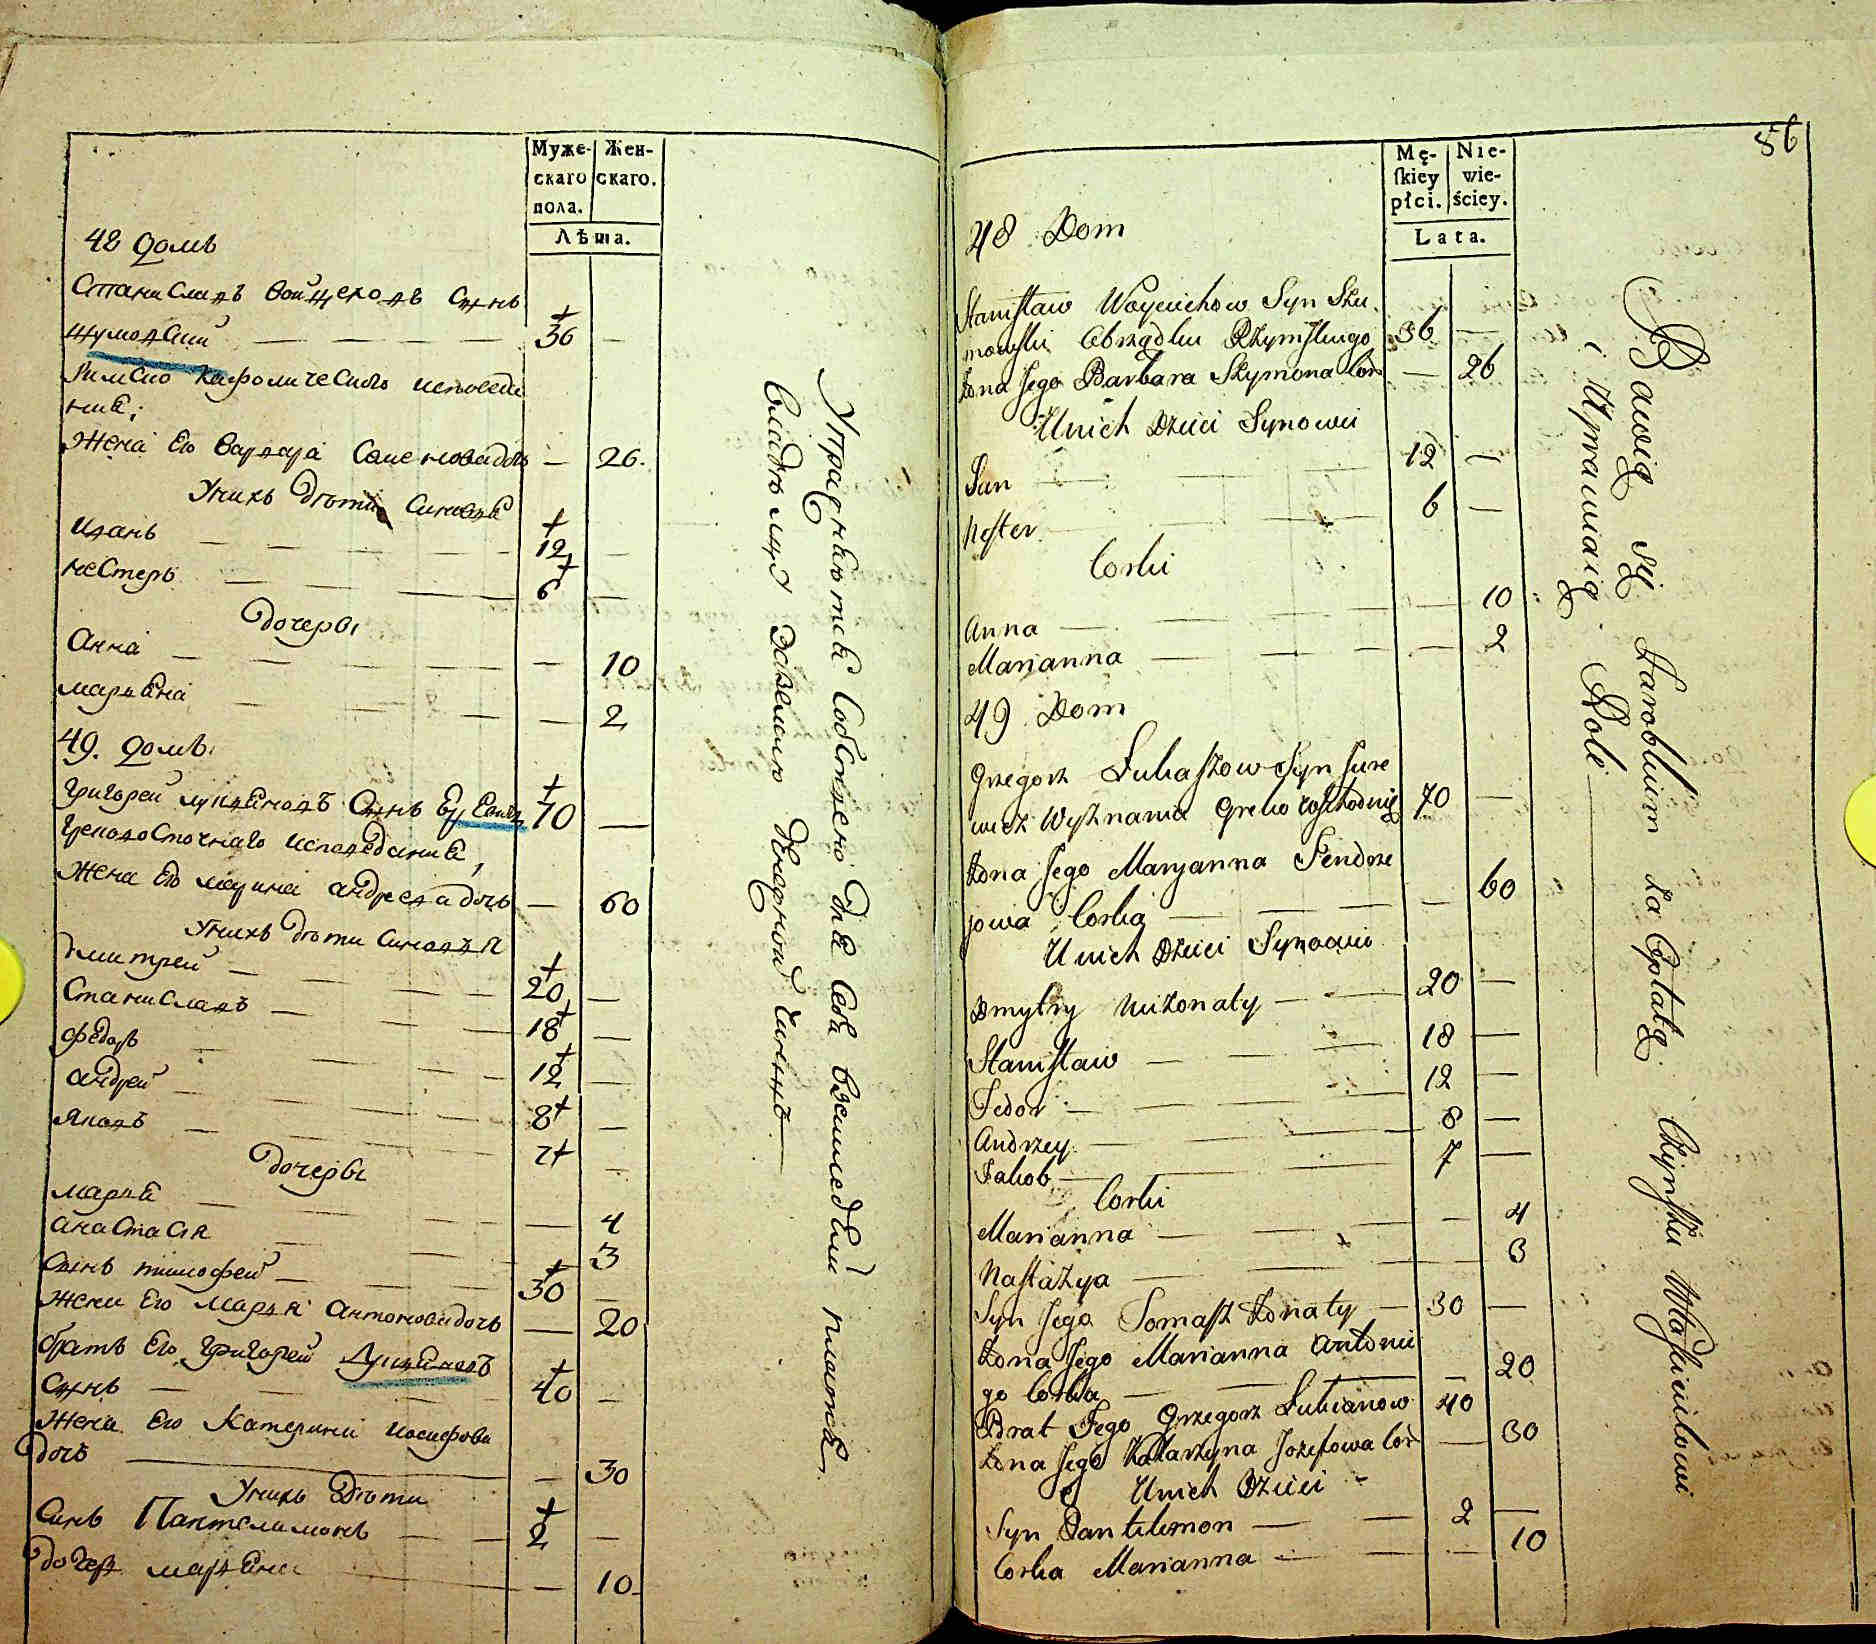 Муже-
скаго
пола.
Жен-
скаго.
Лѣта.
48 домъ
Станиславъ Войцеховъ Сынъ
Шумовский — 36 —
Римско Кафолическаго исповеда
ния;
Жена Его Варвара Семенова дочь — 26.
У нихъ дѣти Синовья
Иванъ — 12 —
Нестеръ — 6 —
Дочеры
Анна — 10
Марьяна — 2
49. домъ.
Григорей Лукьяновъ Сынъ 70 —
Грековосточнаго исповедания,
Жена Его Марина Андреева дочь — 60
У нихъ дѣти Синовья
Дмитрей — 20 —
Станиславъ — 18 —
Федоръ — 12 —
Андрей — 8 —
Яковъ — 7 —
Дочеры
Марья — 4
Анастасия — 3
Сынъ Тимофей — 30 —
Жена Его Марья Антонова дочь — 20
братъ Его Григорей Лукьяновъ
Сынъ — 40 —
Жена Его Катерина Иосифова
дочь — 30
У нихъ Дѣти
Синъ Пантелимонъ — 2 —
дочер Марьяна — 10
Упражняются Собственно для Себя
владѣльцу
56
Mę-
ſkiey
płci.
Nie-
wie-
ściey.
Lata.
48 Dom
Staniſław Woyciechow Syn Szu
mowſki Obrządku Rzymſkiego 36 —
Żona Jego Barbara Szymona Cor — 26
U nich Dzieci Synowie
Jan — 12 —
Neſter — 6 —
Corki
Anna — 10
Marianna — 2
49 Dom
Grzegorz Lukaszow Syn Jure
wicz Wyznania Greko roschodnie 70 —
Żona Jego Maryanna Fendorze
jowa Corka — 60
U nich Dzieci Synowie
Dmytry Nieżonaty — 20 —
Staniſław — 18 —
Fedor — 12 —
Andrzey — 8 —
Jakob — 7 —
Corki
Marianna — 4
Naſtazya — 3
Syn Jego Tomaſz Żonaty — 30 —
Żona Jego Marianna Antonie
go Corka — 20
Brat Jego Grzegorz Lukianow 40
Żona Jego Katarzyna Jozefowa Cor — 30
U nich Dzieci
Syn Pantelemon — 2 —
Corka Marianna — 10
Bawią się Zarobkiem Za Opłatą Czynſzu Właſcicielowi
i Uprawiaią Role